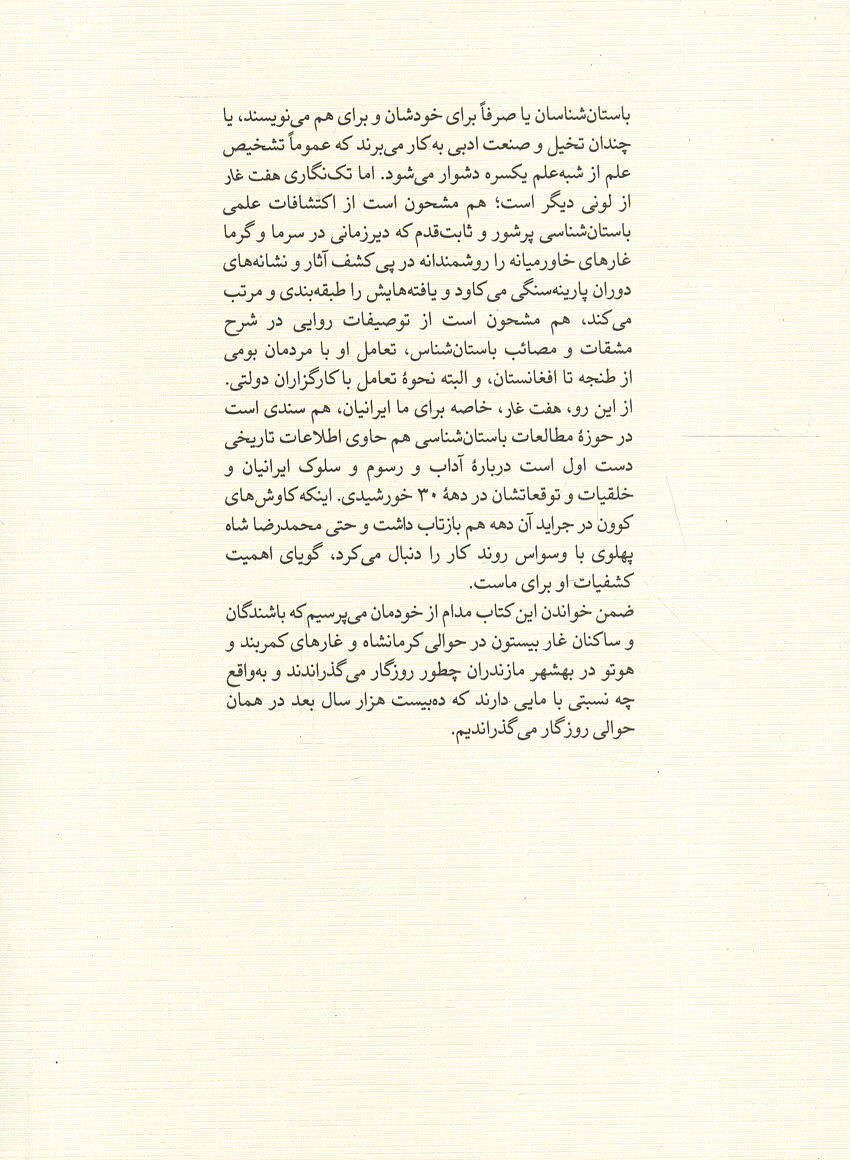 باستان‌شناسان یا صرفاً برای خودشان و برای هم می‌نویسند، یا
چندان تخیل و صنعت ادبی به‌کار می‌برند که عموماً تشخیص
علم از شبه‌علم یکسره دشوار می‌شود. اما تک‌نگاری هفت غار
از لونی دیگر است؛ هم مشحون است از اکتشافات علمی
باستان‌شناسی پرشور و ثابت‌قدم که دیرزمانی در سرما و گرما
غارهای خاورمیانه را روشمندانه در پی کشف آثار و نشانه‌های
دوران پارینه‌سنگی می‌کاود و یافته‌هایش را طبقه‌بندی و مرتب
می‌کند، هم مشحون است از توصیفات روایی در شرح
مشقات و مصائب باستان‌شناس، تعامل او با مردمان بومی
از طنجه تا افغانستان، و البته نحوهٔ تعامل با کارگزاران دولتی.
از این رو، هفت غار، خاصه برای ما ایرانیان، هم سندی است
در حوزهٔ مطالعات باستان‌شناسی هم حاوی اطلاعات تاریخی
دست اول است دربارهٔ آداب و رسوم و سلوک ایرانیان و
خلقیات و توقعاتشان در دههٔ ۳۰ خورشیدی. اینکه کاوش‌های
کوون در جراید آن دهه هم بازتاب داشت و حتی محمدرضا شاه
پهلوی با وسواس روند کار را دنبال می‌کرد، گویای اهمیت
کشفیات او برای ماست.
ضمن خواندن این کتاب مدام از خودمان می‌پرسیم که باشندگان
و ساکنان غار بیستون در حوالی کرمانشاه و غارهای کمربند و
هوتو در بهشهر مازندران چطور روزگار می‌گذراندند و به‌واقع
چه نسبتی با مایی دارند که ده‌بیست هزار سال بعد در همان
حوالی روزگار می‌گذراندیم.